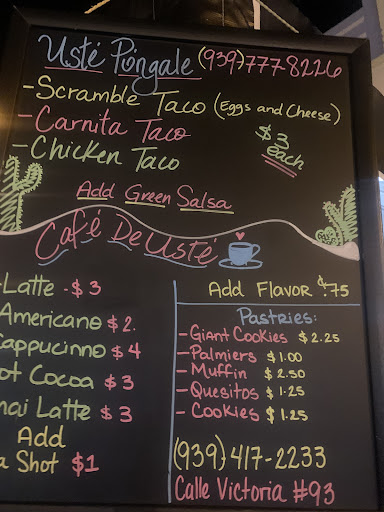 Usté Póngale (939)777-8226
- Scramble Taco (Eggs and Cheese)
- Carnita Taco
- Chicken Taco
$3 each
Add Green Salsa
Café De Usté
-Latte -$3
Americano $2.
Cappucinno $4
ot Cocoa $3
hai Latte $3
Add
a Shot $1
Add Flavor $.75
Pastries:
- Giant Cookies $2.25
- Palmiers $1.00
- Muffin $2.50
- Quesitos $1.25
- Cookies $1.25
(939)417-2233
Calle Victoria #93